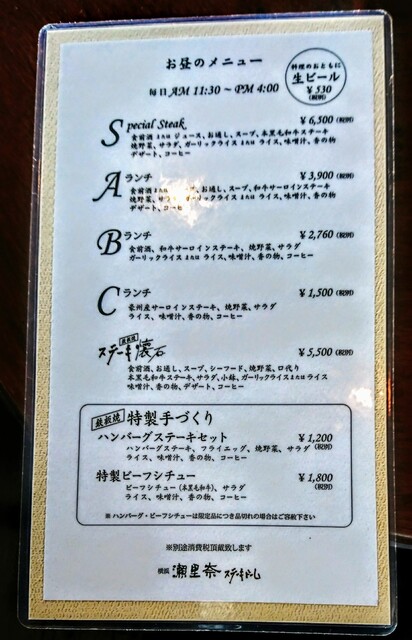 お昼のメニュー
毎日 AM 11:30 ～ PM 4:00
料理のおともに
生ビール
¥530
(税別)
Special Steak ¥6,500 (税別)
食前酒 または ジュース、お通し、スープ、本黒毛和牛ステーキ
焼野菜、サラダ、ガーリックライス または ライス、味噌汁、香の物
デザート、コーヒー
Aランチ ¥3,900 (税別)
食前酒 または お通し、スープ、和牛サーロインステーキ
焼野菜、サラダ、ガーリックライス または ライス、味噌汁、香の物
デザート、コーヒー
Bランチ ¥2,760 (税別)
食前酒、和牛サーロインステーキ、焼野菜、サラダ
ガーリックライス または ライス、味噌汁、香の物、コーヒー
Cランチ ¥1,500 (税別)
豪州産サーロインステーキ、焼野菜、サラダ
ライス、味噌汁、香の物、コーヒー
ステーキ懐石 ¥5,500 (税別)
食前酒、お通し、スープ、シーフード、焼野菜、口代り
本黒毛和牛ステーキ、サラダ、小鉢、ガーリックライス または ライス
味噌汁、香の物、デザート、コーヒー
鉄板焼 特製手づくり
ハンバーグステーキセット ¥1,200
ハンバーグステーキ、フライエッグ、焼野菜、サラダ (税別)
ライス、味噌汁、香の物、コーヒー
特製ビーフシチュー ¥1,800
ビーフシチュー(本黒毛和牛)、サラダ (税別)
ライス、味噌汁、香の物、コーヒー
※ ハンバーグ・ビーフシチューは限定品につき品切れの場合はご容赦下さい
※別途消費税頂戴致します
横浜 瀬里奈 ステーキルーム